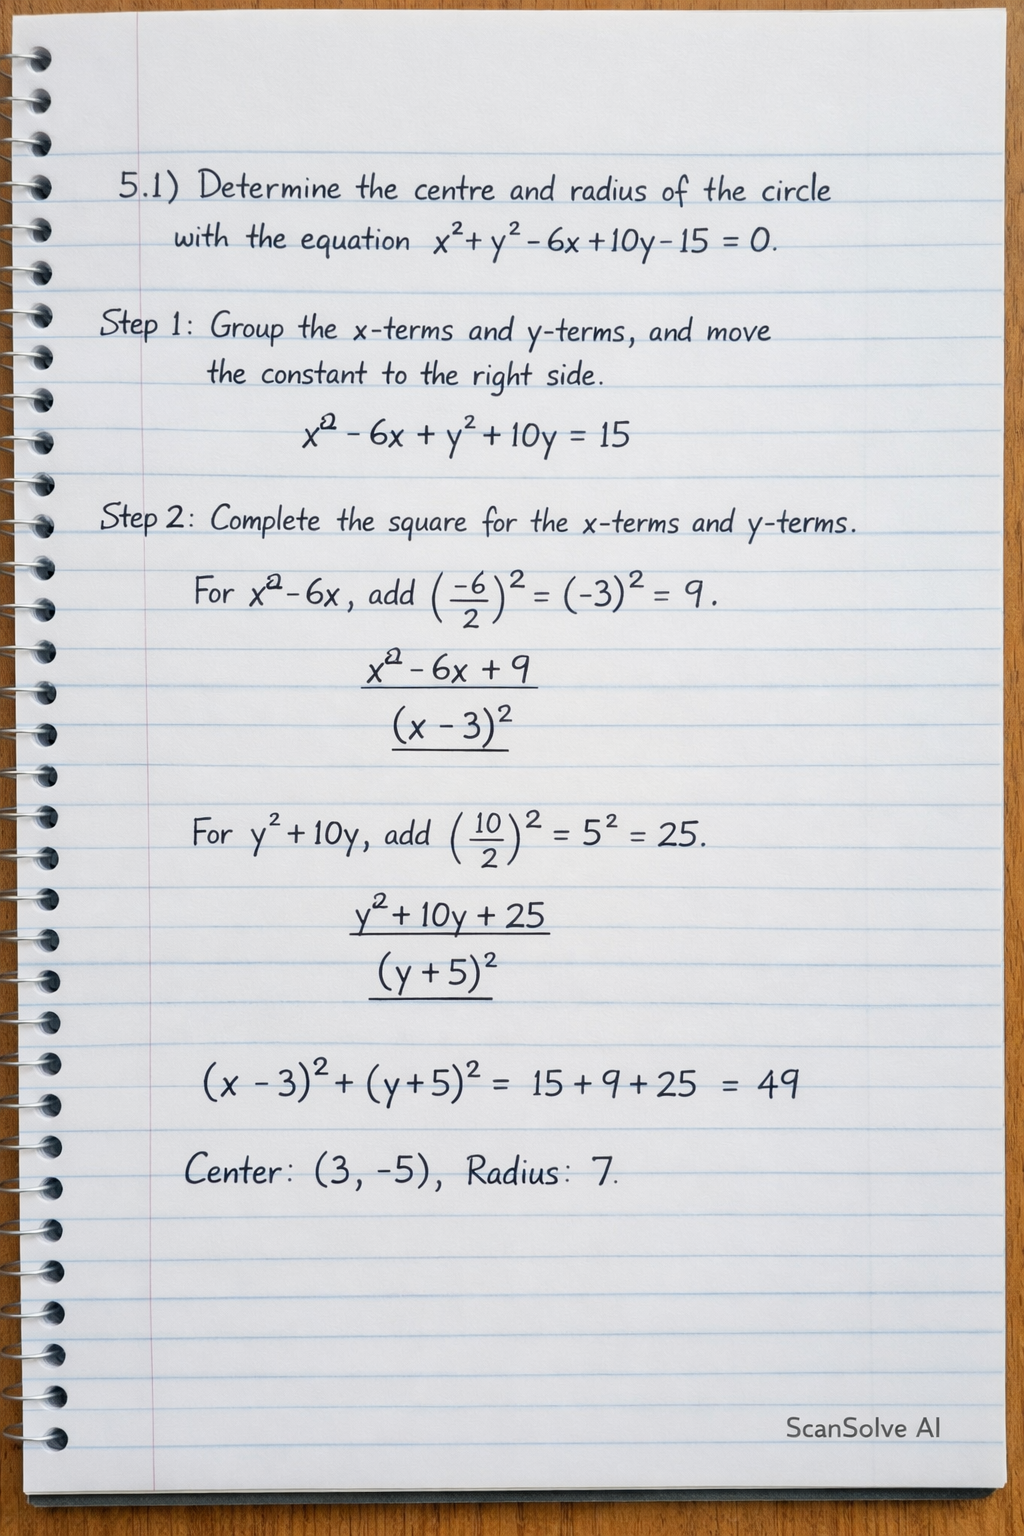 5.1) Determine the centre and radius of the circle
with the equation x² + y² - 6x + 10y - 15 = 0.
Step 1: Group the x-terms and y-terms, and move
the constant to the right side.
x² - 6x + y² + 10y = 15
Step 2: Complete the square for the x-terms and y-terms.
For x² - 6x, add (-6/2)² = (-3)² = 9.
x² - 6x + 9
(x - 3)²
For y² + 10y, add (10/2)² = 5² = 25.
y² + 10y + 25
(y + 5)²
(x - 3)² + (y + 5)² = 15 + 9 + 25 = 49
Center: (3, -5), Radius: 7.
ScanSolve AI